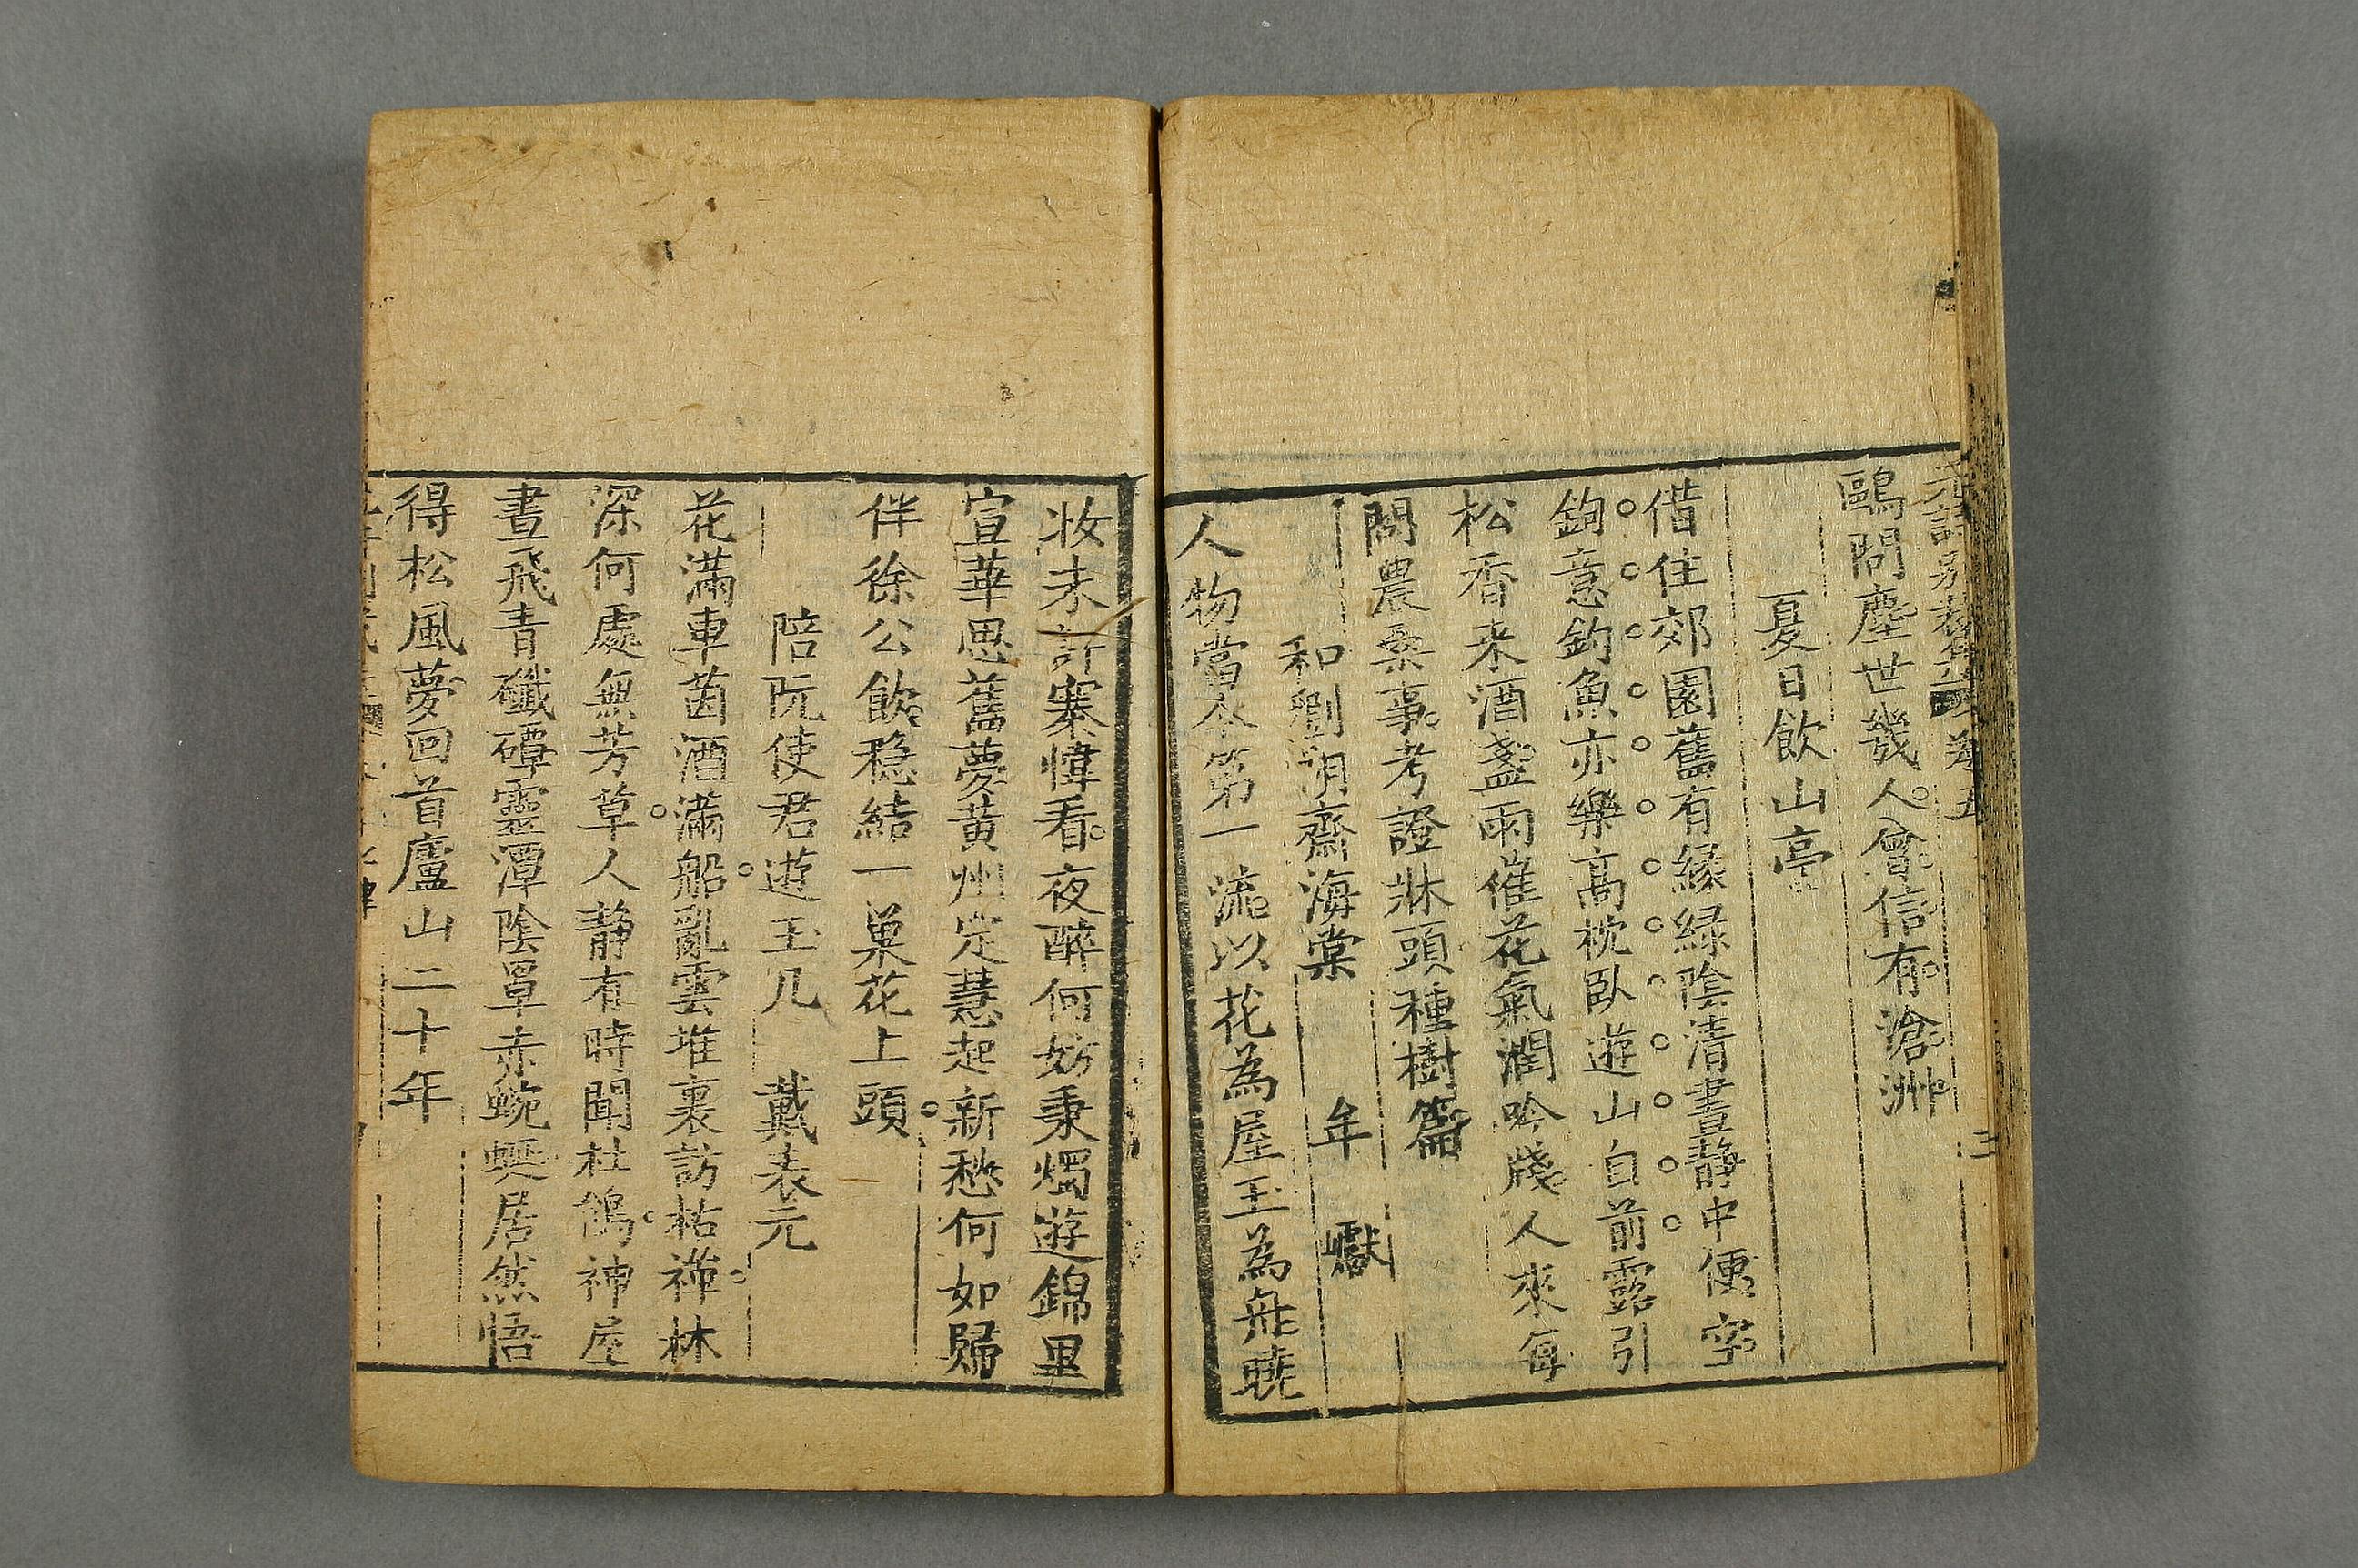 鷗問塵世幾人會信有滄洲
夏日飲山亭
偕住郊園舊有緣緑陰清晝静中便字
鉤意釣魚亦樂高枕臥遊山自前露引
松香来酒盞雨催花氣潤吟牋人來每
問農桑事考證牀頭種樹篇
和劉明齋海棠 牟巘
人物當今第一流以花為屋玉為舟曉
妝未許褰幃看夜醉何妨秉燭遊錦里
宣華思舊夢黄州定慧起新愁何如歸
伴徐公飲穏結一巢花上頭
陪阮使君遊玉几 戴表元
花滿車茵酒滿船亂雲堆裏訪枯禅林
深何處無芳草人静有時聞杜鵑神屋
晝飛青礥磹靈潭陰罩赤蜿蜒居然悟
得松風夢回首廬山二十年